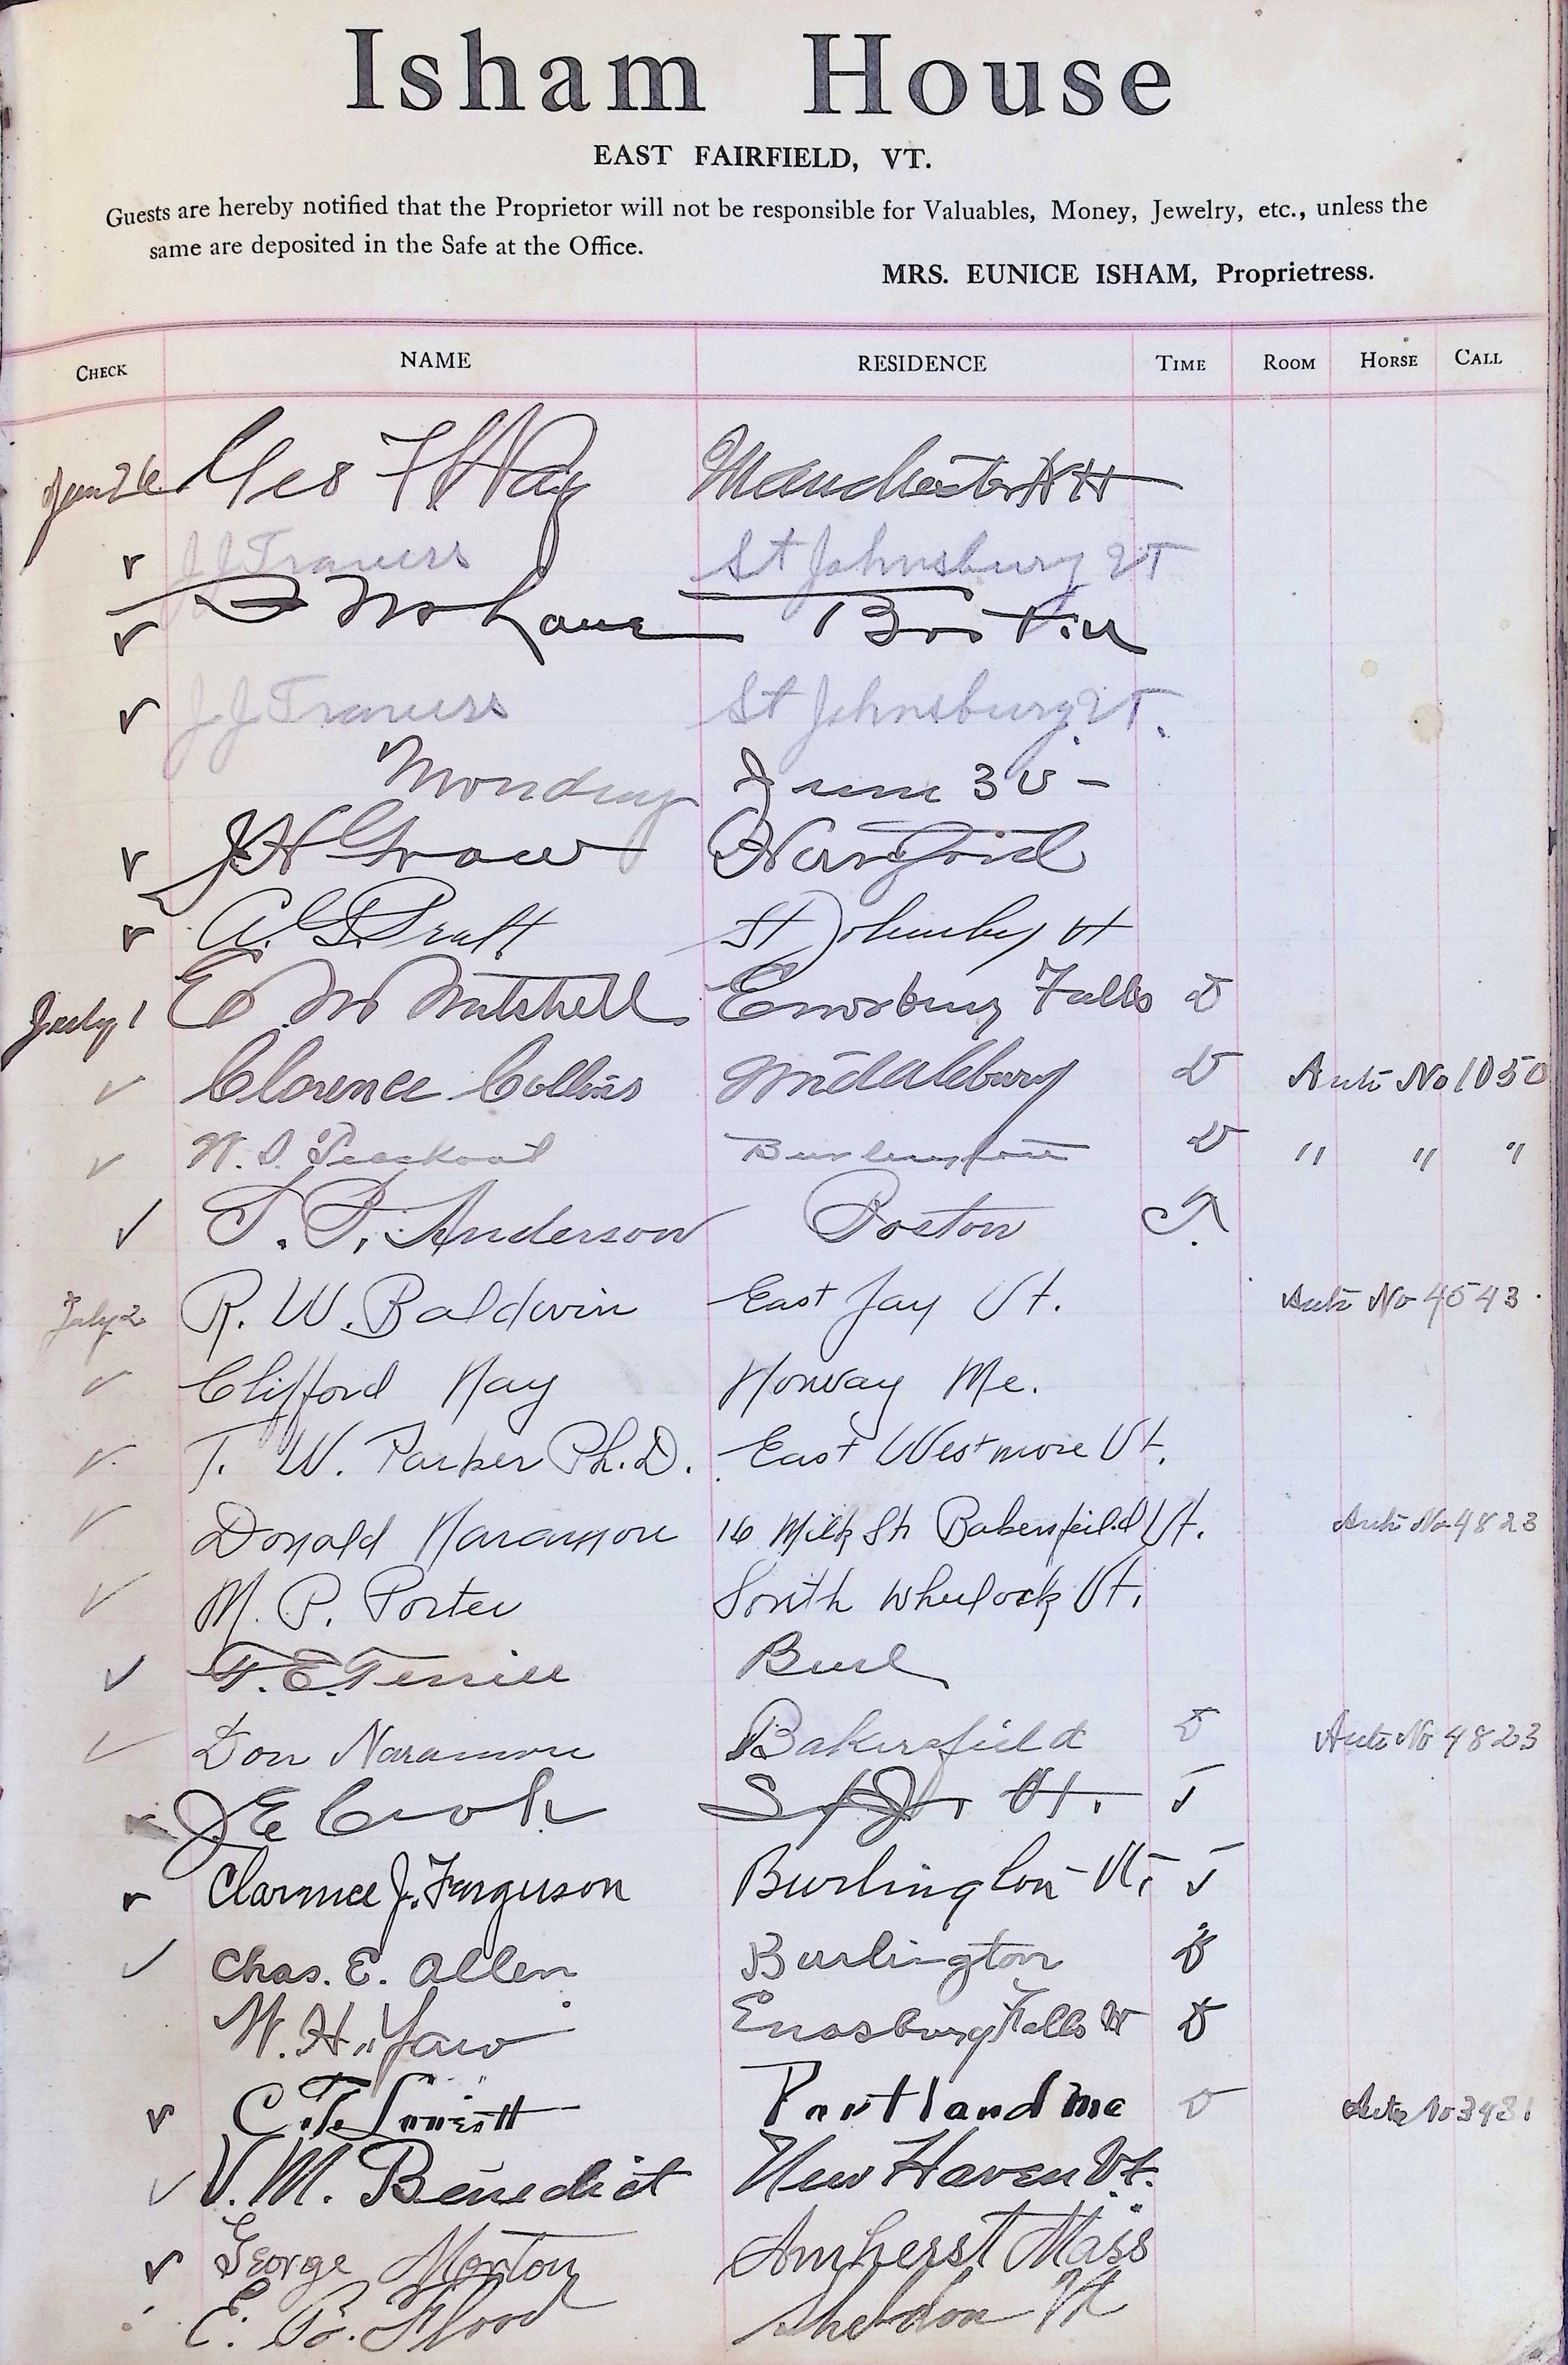 Isham House
EAST FAIRFIELD, VT.
Guests are hereby notified that the Proprietor will not be responsible for Valuables, Money, Jewelry, etc., unless the
same are deposited in the Safe at the Office.
MRS. EUNICE ISHAM, Proprietress.
CHECK NAME RESIDENCE TIME ROOM HORSE CALL
Jun 26 Geo F Way Manchester NH
J J Travers St Johnsbury VT
Lane Boston
J J Travers St Johnsbury VT.
Monday June 30 -
J H Grow Hartford
A. G. Pratt St Johnsbury Vt
July 1 E W Mitchell Enosburg Falls D
Clarence Collins Middlebury D Auto No 1050
W. D. Burlington D " " "
Anderson Boston
July 2 R. W. Baldwin East Jay Vt. Auto No 4543
Clifford Nay Norway Me.
T. W. Parker Ph.D. East Westmore Vt.
Donald Naramore 16 Milk St Bakersfeild Vt. Auto No 4823
M. P. Porter South Wheelock Vt.
F. E. Terrill Burl
Don Naramore Bakersfield D Auto No 4823
J E Cook St J. Vt.
Clarence J. Ferguson Burlington Vt.
Chas. E. Allen Burlington D
W. H. Yaw Enosburg Falls Vt D
C. Portland Me D Auto No 3431
V. M. Benedict New Haven Vt.
George Morton Amherst Mass
E. B. Flood Sheldon Vt